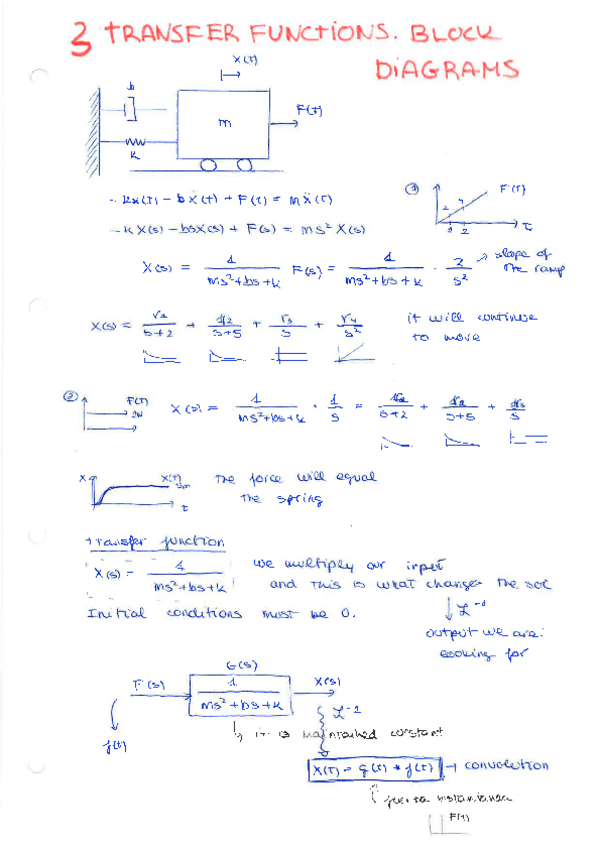 3 TRANSFER FUNCTIONS. BLOCK
DIAGRAMS
X(t)
b
m
F(t)
K
- Kx(t) - bẋ(t) + F(t) = mẍ(t)
① F(t)
2 4
1 2 t
- K X(s) - bsX(s) + F(s) = ms² X(s)
X(s) = 1/(ms²+bs+k) F(s) = 1/(ms²+bs+k) · 2/s² → slope of
the ramp
X(s) = r1/(s+2) + r2/(s+5) + r3/s + r4/s² it will continue
to move
② F(t) 2N
X(s) = 1/(ms²+bs+k) · 1/s = r1/(s+2) + r2/(s+5) + r3/s
X X(t) t
The force will equal
the spring
transfer function
X(s) = 1/(ms²+bs+k) we multiply our input
and this is what changes the sol
Initial conditions must be 0.
↓ ℒ⁻¹
output we are
looking for
G(s)
F(s) 1/(ms²+bs+k) X(s)
f(t)
ℒ⁻¹
↳ it is maintained constant
X(t) = g(t) * f(t) → convolution
F(t)